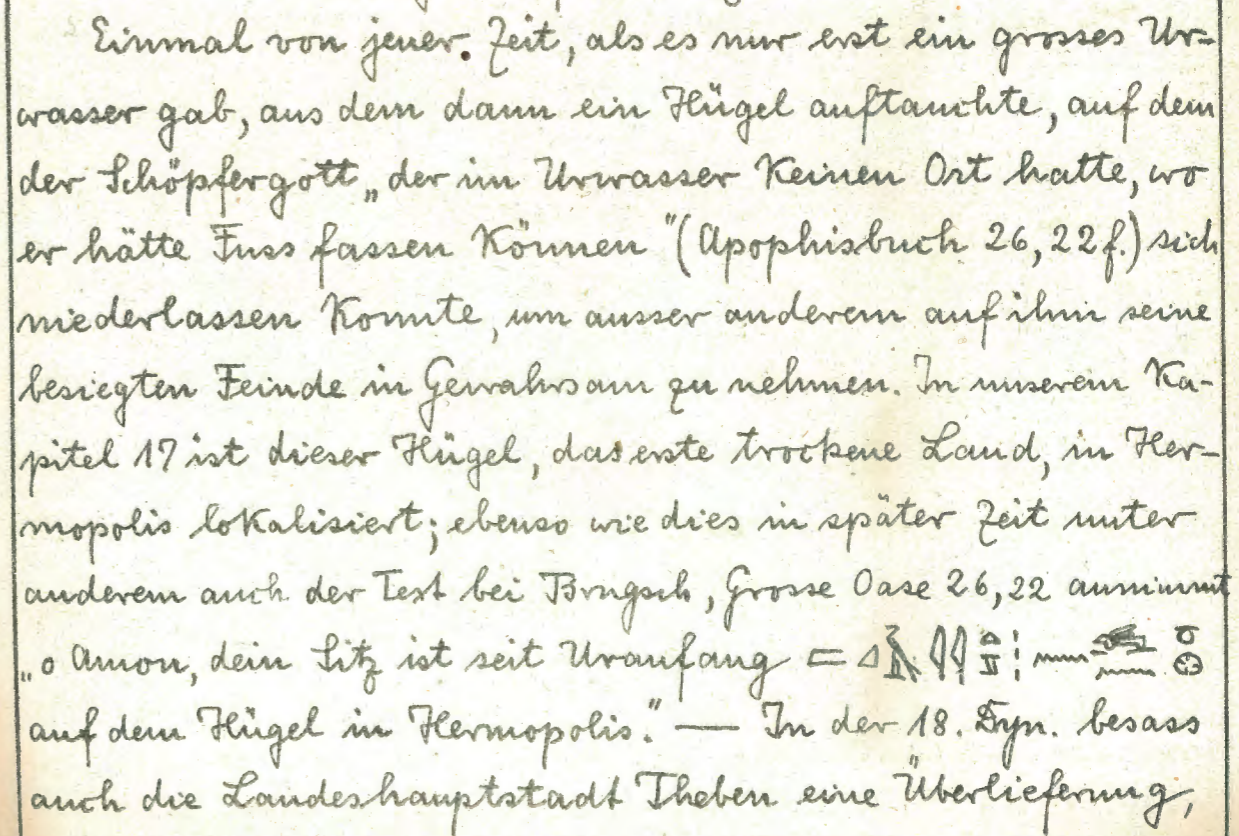 Einmal von jener. Zeit, als es nur erst ein grosses Ur-
wasser gab, aus dem dann ein Hügel auftauchte, auf dem
der Schöpfergott „der im Urwasser keinen Ort hatte, wo
er hätte Fuss fassen können" (Apophisbuch 26, 22 f.) sich
niederlassen konnte, um ausser anderem auf ihm seine
besiegten Feinde in Gewahrsam zu nehmen. In unserem Ka-
pitel 17 ist dieser Hügel, das erste trockene Land, in Her-
mopolis lokalisiert; ebenso wie dies in später Zeit unter
anderem auch der Text bei Brugsch, Grosse Oase 26, 22 annimmt
„o Amon, dein Sitz ist seit Uranfang
auf dem Hügel in Hermopolis." — In der 18. Dyn. besass
auch die Landeshauptstadt Theben eine Überlieferung,